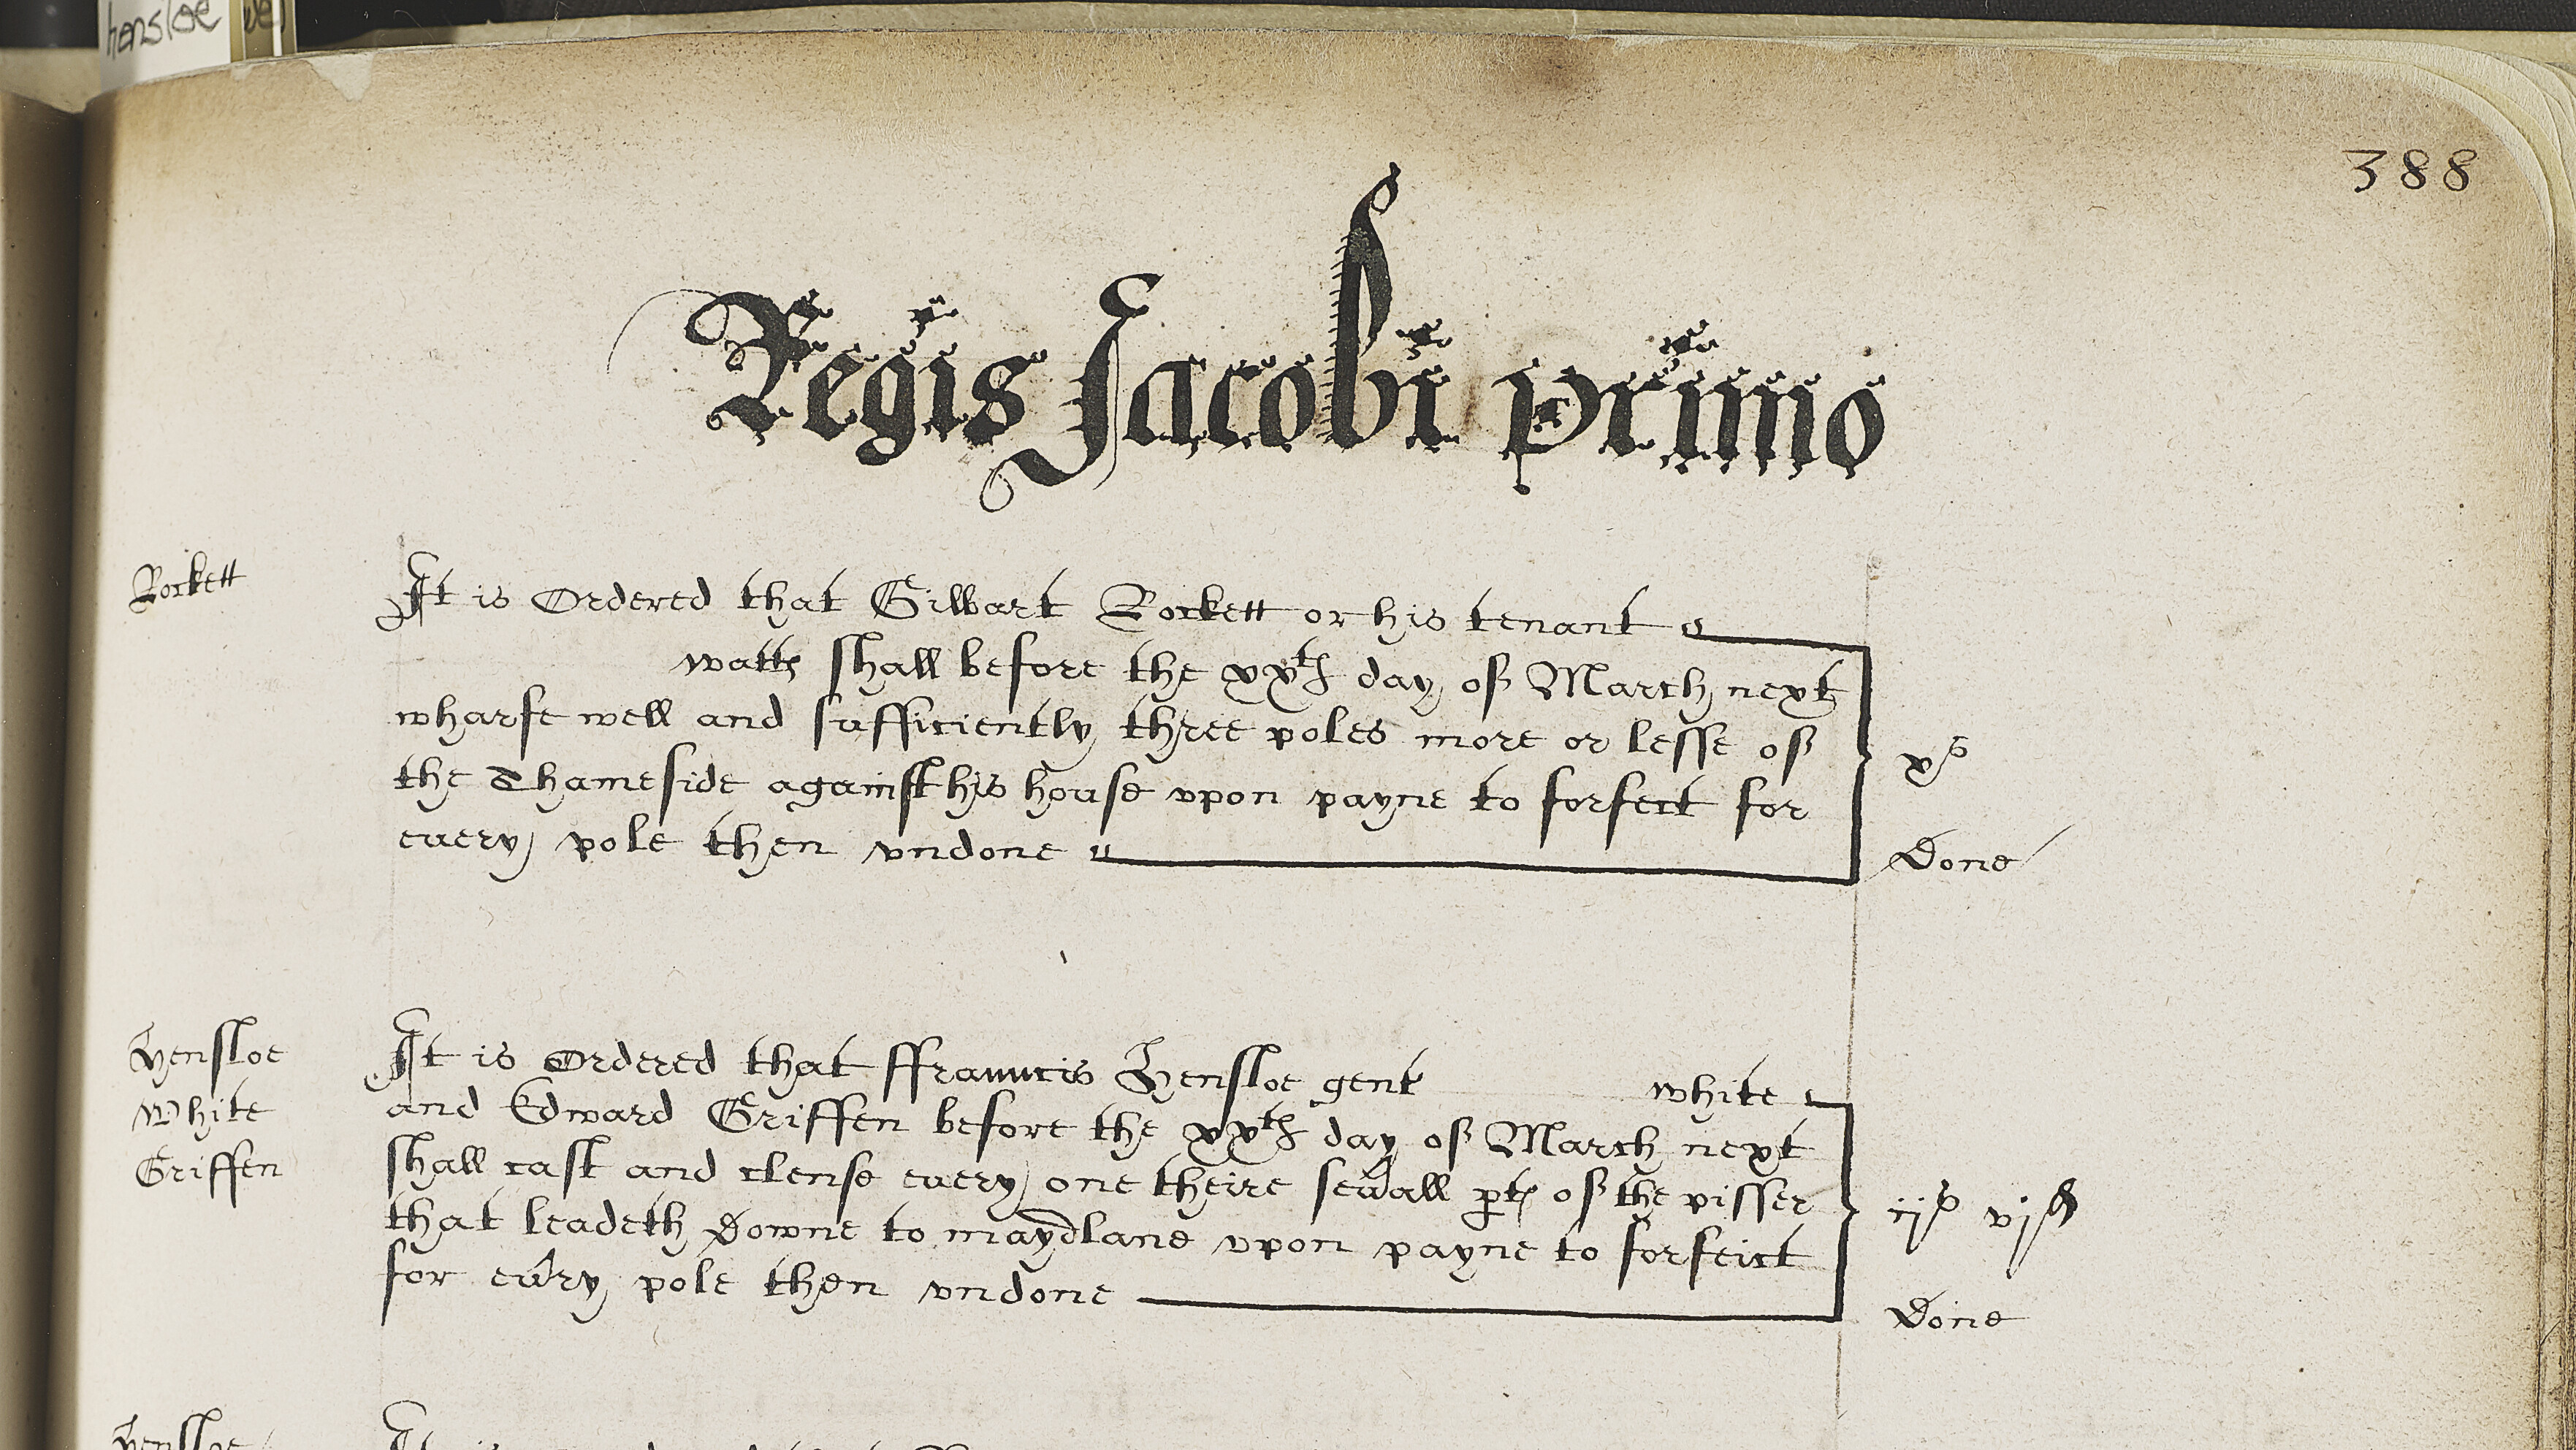 hensloe
388
Regis Jacobi primo
Rockett
It is Ordered that Gilbart Rockett or his tenant
watts shall before the xxth day of March next
wharfe well and sufficiently three poles more or lesse of
the Thameside against his house vpon payne to forfect for
euery pole then vndone
xs
Done
Hensloe
White
Griffen
It is Ordered that ffrauncis Hensloe gent white
and Edward Griffen before the xxth day of March next
shall cast and clense euery one theire sewall pts of the pisser
that leadeth Downe to maydlane vpon payne to forfeict
for ewry pole then vndone
ijs vjd
Done
Hensloe
It is